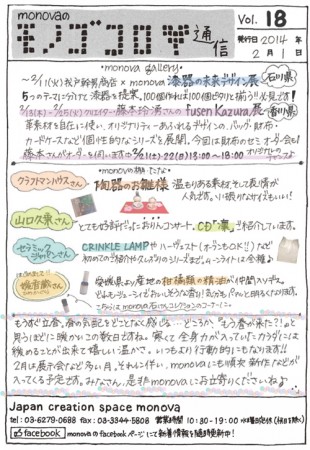 monovaの
モノゴコロザ通信
Vol. 18
発行日 2014 年
2 月 1 日
•monova gallery•
〜2/11(火) 松戸幹男商店×monova 漆器の未来デザイン展 石川県
5つのテーマに分けて漆器を提案。100個作れば100個ピタリと揃う!!必見です!
クリエイター 藤本玲奈さんの fusen Kazura 展 香川県
革素材を自在に使い、オリジナリティーあふれるデザインの、バッグ・財布・
カードケースなど個性的なシリーズを展開。今回は財布のセミオーダーも
藤本さんがオーダーを伺います 2/21(土)22(日)13:00〜18:00
クラフトマンハウスさん
陶器のお雛様 温もりある素材そして表情が
人気です。いい顔のサイズもいい!
山口久乗さん
とても好評だったおりんコンサート。CD「凛」ご紹介しています。
セラミックジャパンさん
CRINKLE LAMPや ハーヴェスト(オーブンもOK!!)など
初めてのご紹介やグレ うりのシリーズまで。ムーンライトは全種♪
愛媛県より産地の柑橘類の精油が仲間入り。
こちらは monova 石けんコレクションのコーナーに
もうすぐ立春、春の気配をどことなく感じる… どころか"もう春が来た?!"と
思うほどに暖かいこの数日ですね。寒くて全身力が入っていたカラダには
緩めることが出来て嬉しい温かさ。いつもより行動的にもなります!!
2月は展示会なども多い月、それに伴い、monovaにも順次新作などが
入ってくる予定です。みなさん、是非monovaにお立寄りくださいね♪
Japan creation space monova
tel:03-6279-0688 fax:03-3344-5808 営業時間 10:30-19:00 水曜日定休(祝日を除く)
facebook monovaのfacebookページにて新着情報を随時更新中!